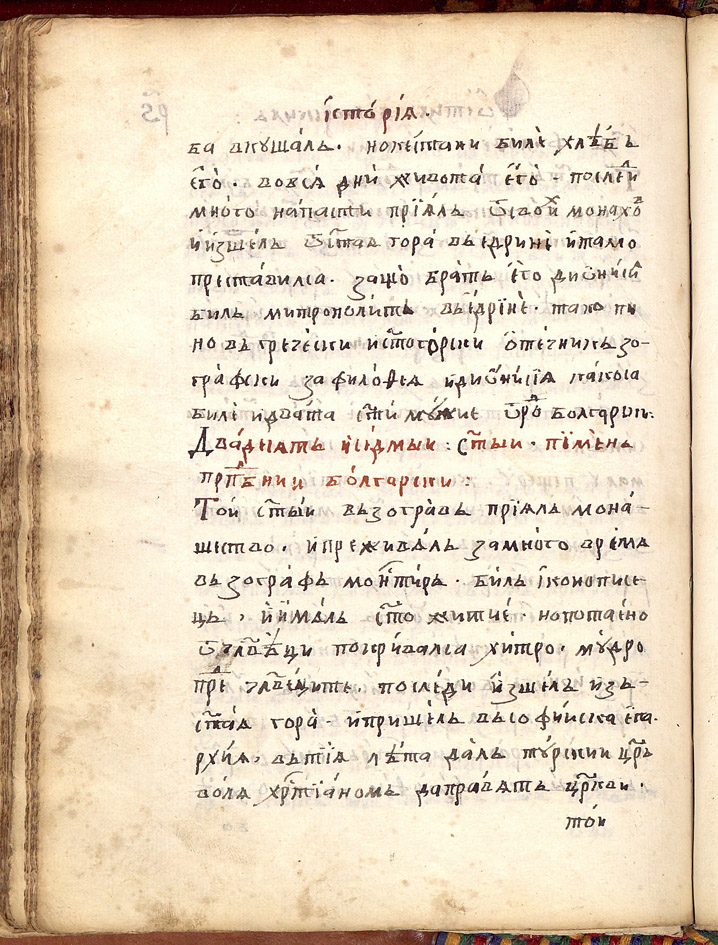 їсторїѧ.
ба вкушалъ. но кестани билѐ хлѣбъ
его̀. во всѧ дни живота̀ его̀. послеⷣи
много напасти прїѧлъ ѿ своиⷯ монахоⷡ
и изшелъ ѿ стаѧ гора въ едринѐ и тамо
преставилсѧ. защо братъ его диѡнисїи
билъ митрополитъ въ едрїнѐ. тако пи
но въ гречески и стогорски отечникъ зо-
графски за филоѳеѧ и диѡнисїѧ како са
билѐ и двата стїи мужие ѿ роⷣ болгарски:
Двадесѧть и седмыи: стыи. пїменъ
прпⷣбнии болгарски:
Тои стыи въ зогравъ прїѧлъ мона-
шество. и преживалъ за много времѧ
въ зографъ монⷭтиръ. билъ иконописе-
цъ. и ималъ сто житие. но потаено
ѿ члвѣци покривалсѧ хитро. мꙋдро
преⷣ члвеците. последи изшелъ изъ-
стаѧ гора. и пришелъ въ софииска епа.
рхїѧ. въ тїѧ лѣта далъ турскии црь
волѧ хрⷭтїаномъ да правѧтъ црⷦви.
тои